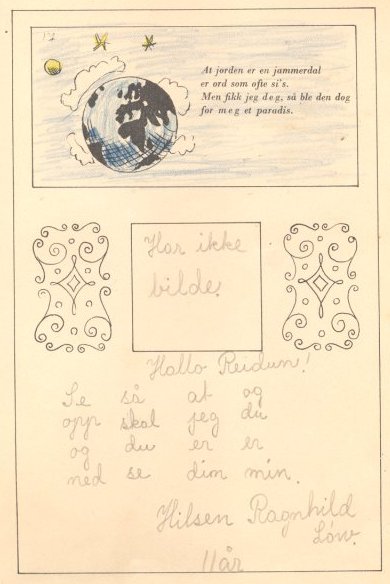 At jorden er en jammerdal
er ord som ofte si's.
Men fikk jeg deg, så ble den dog
for meg et paradis.
Har ikke
bilde.
Hallo Reidun!
Se så at og
opp skal jeg du
og du er er
ned se dim min.
Hilsen Ragnhild
Löw.
11 år